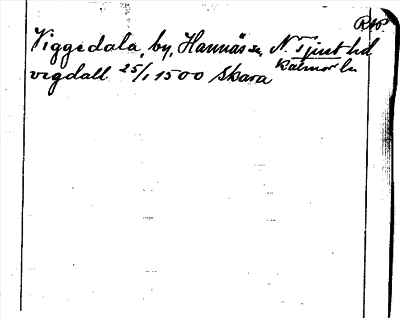 RAP.
Viggedala, by, Hannäs sn, N. Tjust hd
Kalmar ln
vigdall 25/1 1500 Skara